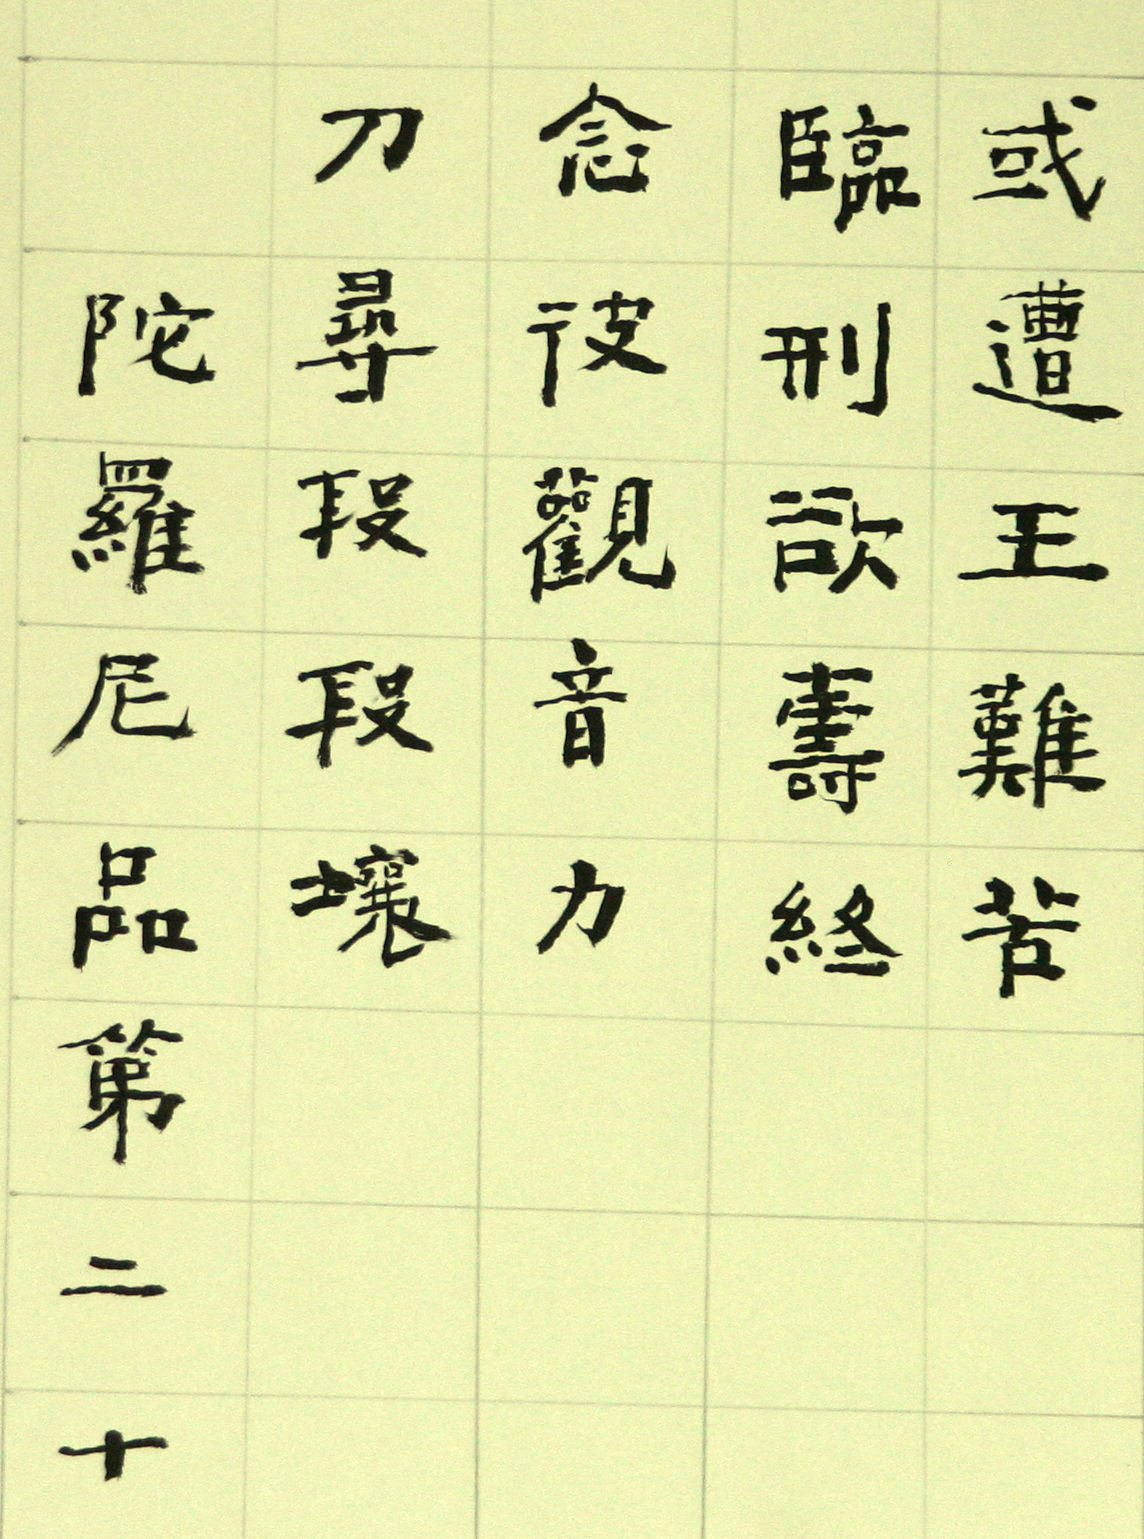 或遭王難苦
臨刑欲壽終
念彼觀音力
刀尋段段壞
陀羅尼品第二十